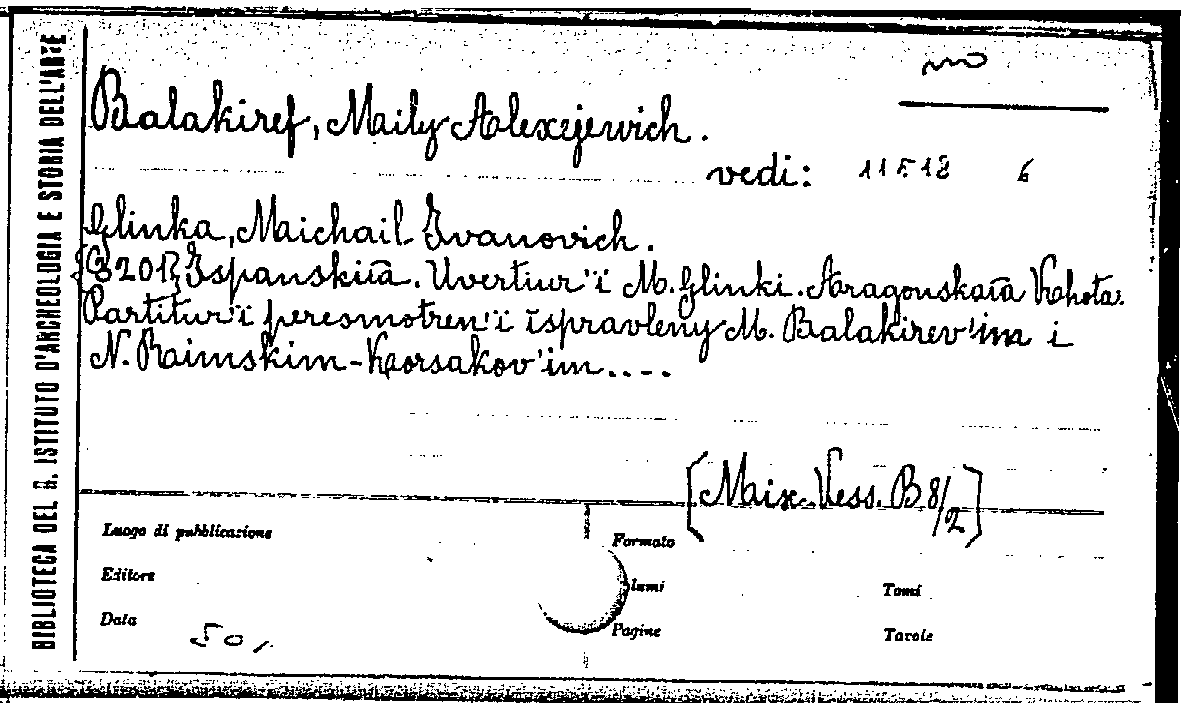 BIBLIOTECA DEL R. ISTITUTO D'ARCHEOLOGIA E STORIA DELL'ARTE
Balakiref, Maily Alexejewich.
vedi: 11518 6
Glinka, Maichail Ivanovich.
Ispanskiia. Uvertiur'i M. Glinki. Aragonskaia Khota.
Partitur'i peresmotren'i ispravleny M. Balakirev'im i
N. Raimskim-Korsakov'im....
[Maix. Vess. B 8/2]
Luogo di pubblicazione
Formato
Editore
lumi
Tomi
Data
50,
Pagine
Tavole